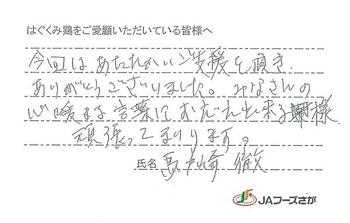 はぐくみ鶏をご愛願いただいている皆様へ
今回はあたたかいご支援を頂き
ありがとうございました。みなさんの
心暖まる言葉にむくえ出来る様
頑張ってまいります。
氏名 崎 徹
JAフーズさが